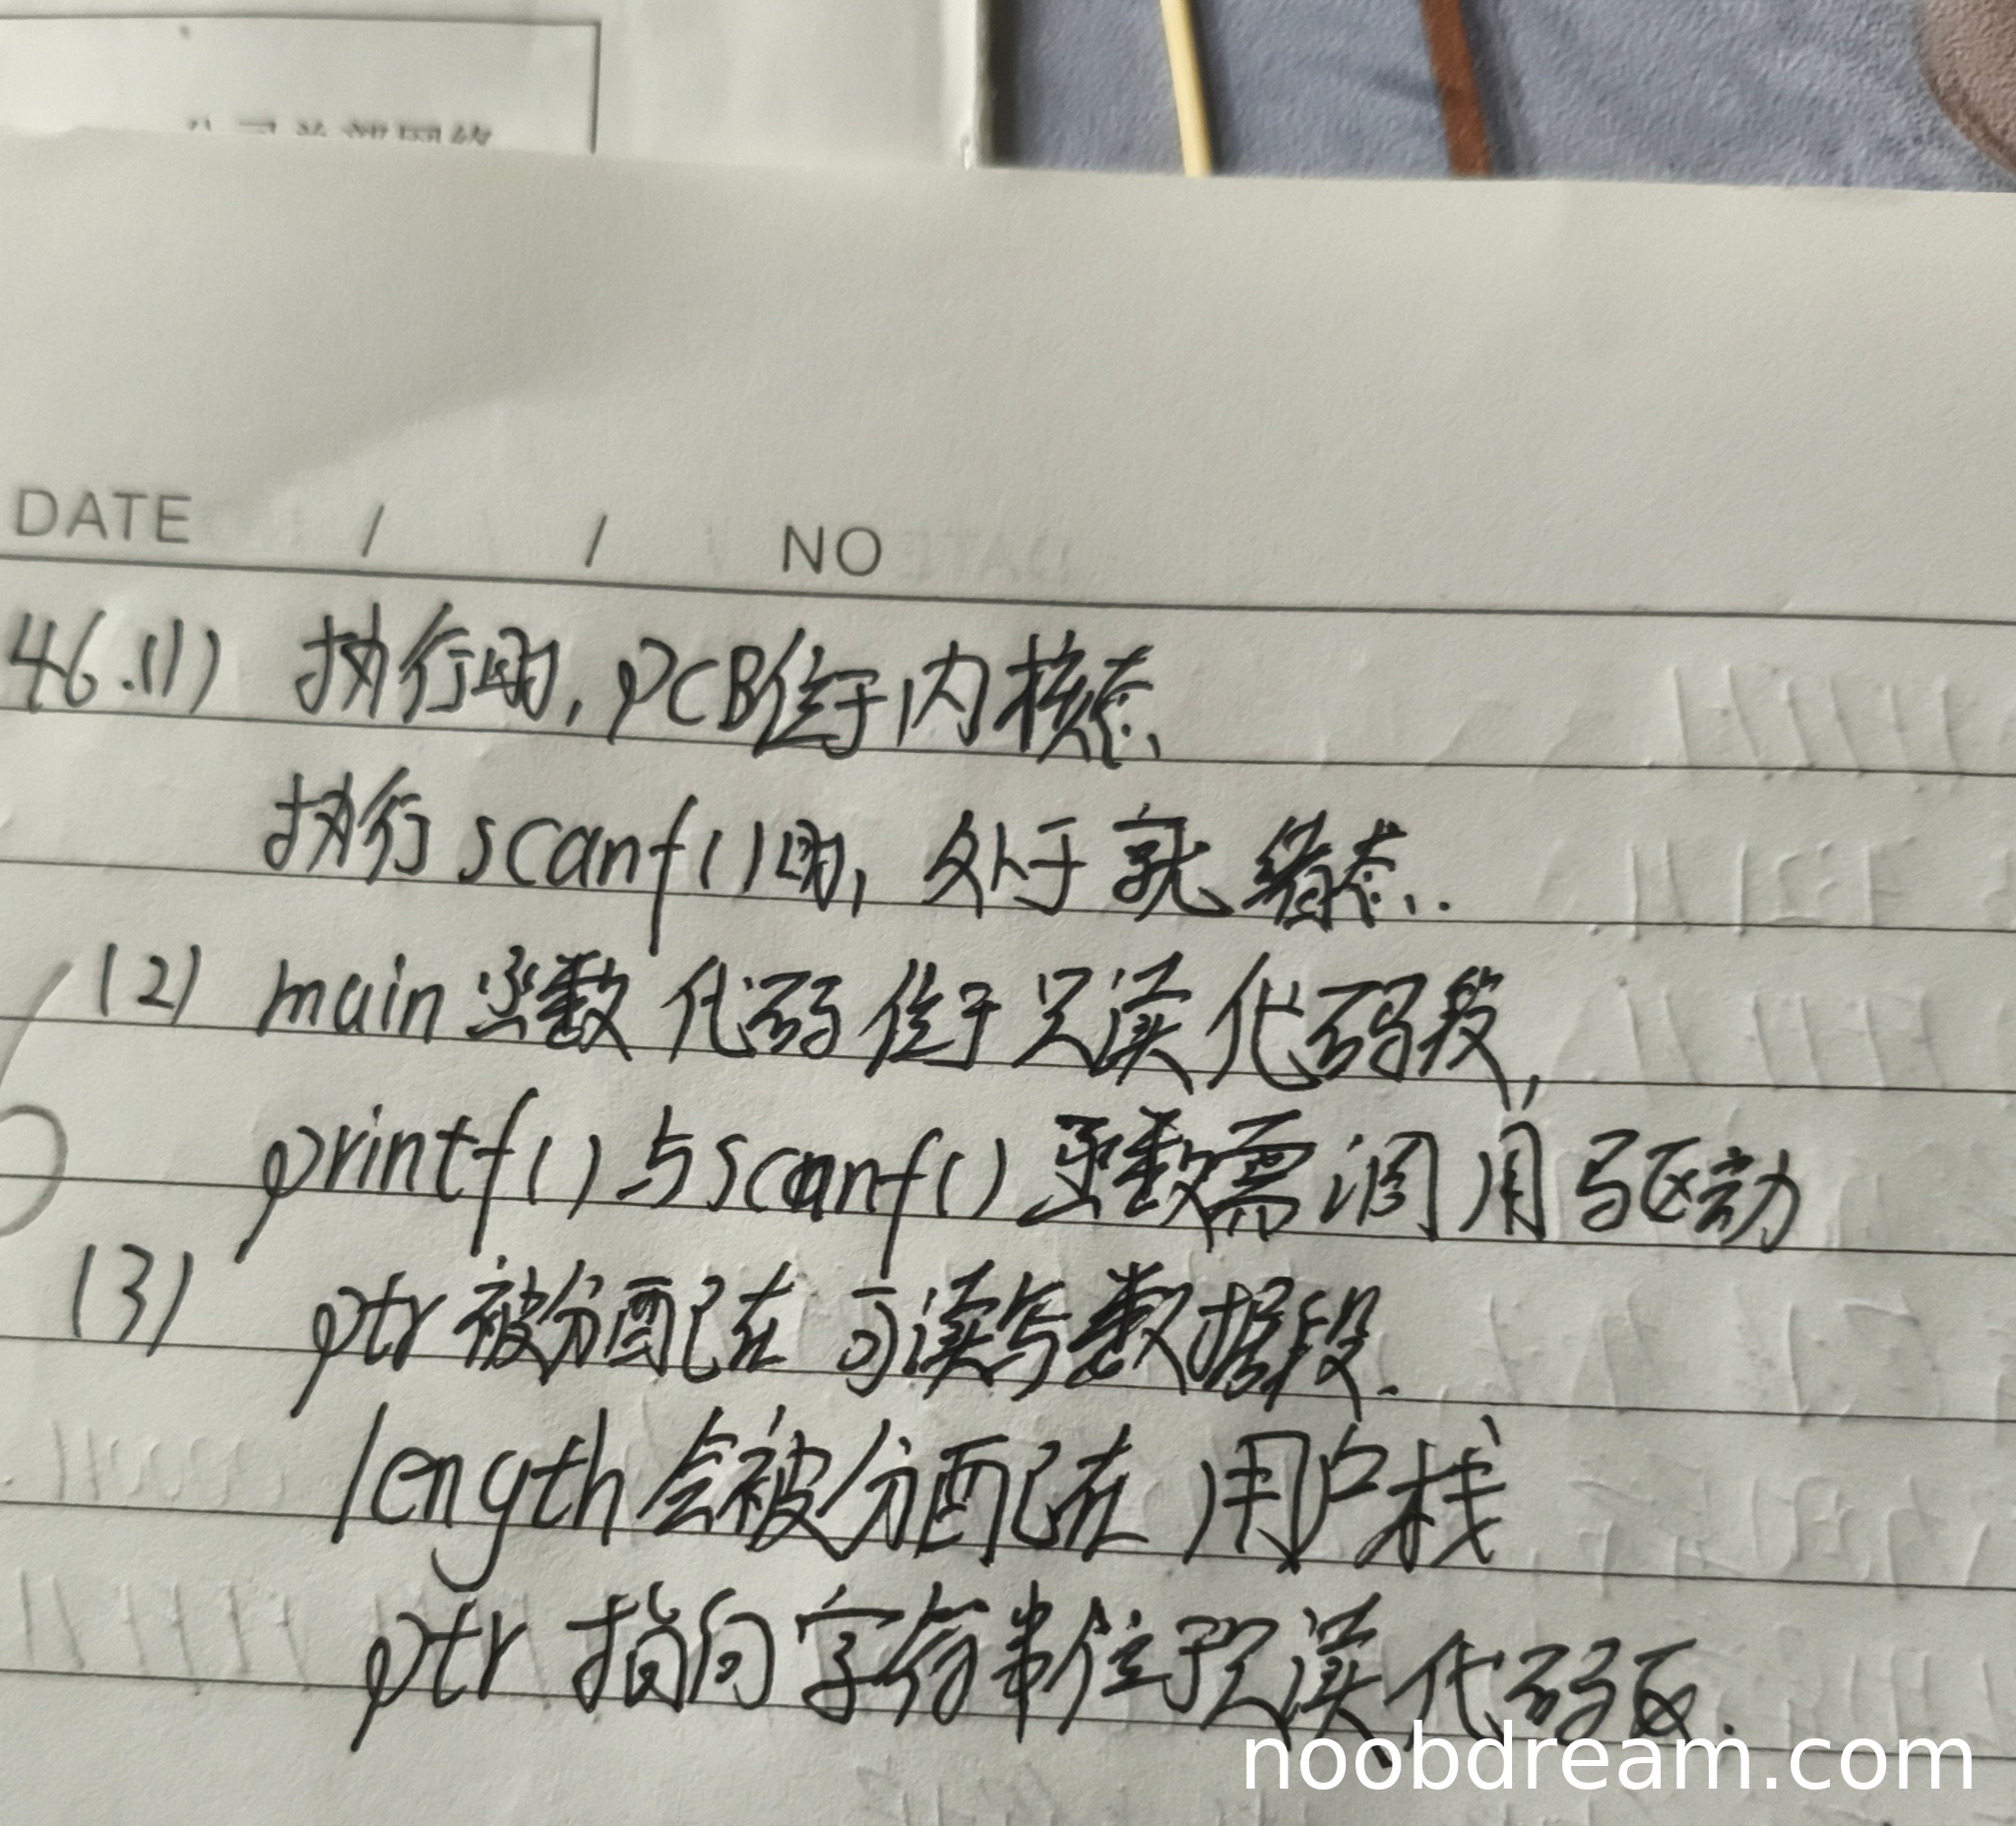 DATE / / NO
46.(1) 执行时,PCB位于内核态、
执行scanf()时,处于就绪态..
(2) main函数代码位于只读代码段,
printf()与scanf()函数需调用驱动
(3) ptr被分配在可读写数据段.
length会被分配在用户栈
ptr指向字符串位于只读代码区.
noobdream.com